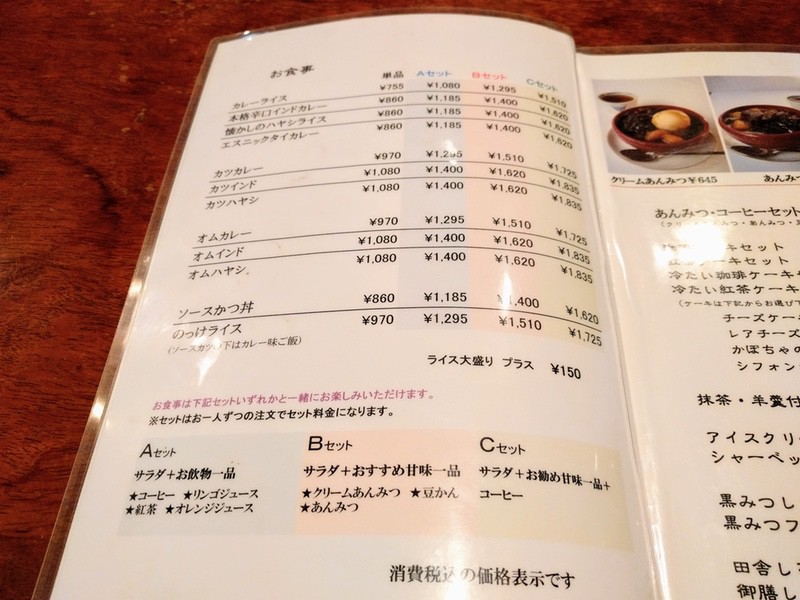 お食事 単品 Aセット Bセット Cセット
カレーライス ¥755 ¥1,080 ¥1,295 ¥1,510
本格辛口インドカレー ¥860 ¥1,185 ¥1,400 ¥1,620
懐かしのハヤシライス ¥860 ¥1,185 ¥1,400 ¥1,620
エスニックタイカレー ¥860 ¥1,185 ¥1,400 ¥1,620
カツカレー ¥970 ¥1,295 ¥1,510 ¥1,725
カツインド ¥1,080 ¥1,400 ¥1,620 ¥1,835
カツハヤシ ¥1,080 ¥1,400 ¥1,620 ¥1,835
オムカレー ¥970 ¥1,295 ¥1,510 ¥1,725
オムインド ¥1,080 ¥1,400 ¥1,620 ¥1,835
オムハヤシ ¥1,080 ¥1,400 ¥1,620 ¥1,835
ソースかつ丼 ¥860 ¥1,185 ¥1,400 ¥1,620
のっけライス ¥970 ¥1,295 ¥1,510 ¥1,725
(ソースカツの下はカレー味ご飯)
ライス大盛り プラス ¥150
お食事は下記セットいずれかと一緒にお楽しみいただけます。
※セットはお一人ずつの注文でセット料金になります。
Aセット
サラダ+お飲物一品
★コーヒー ★リンゴジュース
★紅茶 ★オレンジジュース
Bセット
サラダ+おすすめ甘味一品
★クリームあんみつ ★豆かん
★あんみつ
Cセット
サラダ+お勧め甘味一品+
コーヒー
消費税込の価格表示です
クリームあんみつ¥645 あんみ
あんみつ・コーヒーセット
ケーキセット
ケーキセット
冷たい珈琲ケーキ
冷たい紅茶ケーキ
(ケーキは下記からお選び下
チーズケー
レアチーズ
かぼちゃの
シフォン
抹茶・羊羹付
アイスクリ
シャーベッ
黒みつし
黒みつフ
田舎し
御膳し